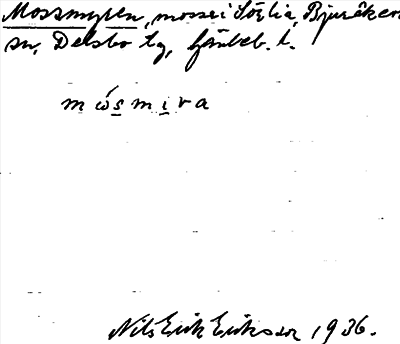 Mossmyren, mosse i Sörlia, Bjuråker
sn, Delsbo tg, Gävleb. l.
mós mira
Nils Erik Eriksson 1936.